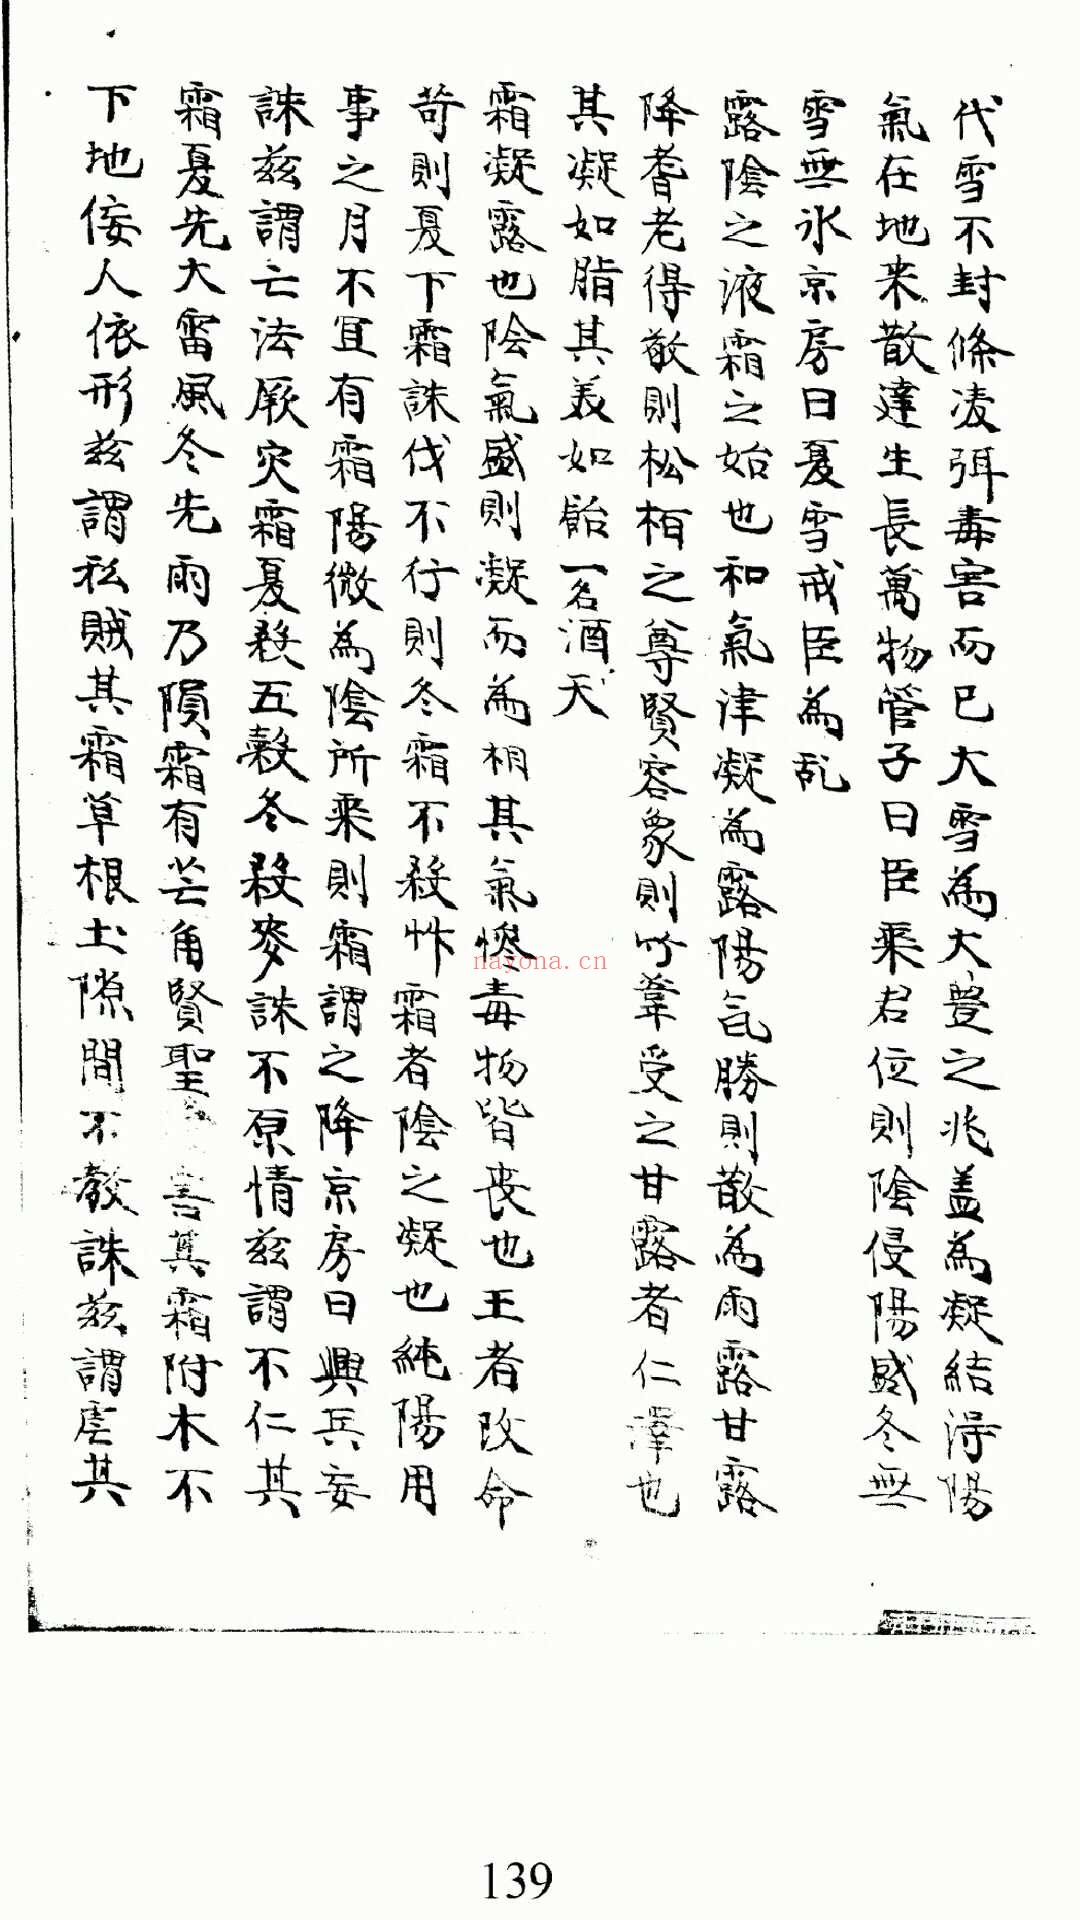 代雪不封條凌弭毒害而已大雪為大豊之兆盖為凝結淂陽
氣在地来散達生長萬物管子曰臣乘君位則陰侵陽盛冬無
雪無氷京房曰夏雪戒臣為乱
露陰之液霜之始也和氣津凝為露陽氣勝則散為雨露甘露
降耆老得敬則松栢之尊賢容象則竹葦受之甘露者仁澤也
其凝如脂其美如飴一名酒天
霜凝露也陰氣盛則凝而為相其氣慘毒物皆喪也王者政命
苛則夏下霜誅伐不行則冬霜不殺艸霜者陰之凝也純陽用
事之月不宜有霜陽微為陰所乘則霜謂之降京房曰興兵妄
誅茲謂亡法厥灾霜夏殺五穀冬殺麥誅不原情茲謂不仁其
霜夏先大雷風冬先雨乃隕霜有芒角賢聖害其霜附木不
下地佞人依形茲謂私賊其霜草根土隙間不教誅茲謂虐其
nayona.cn
139